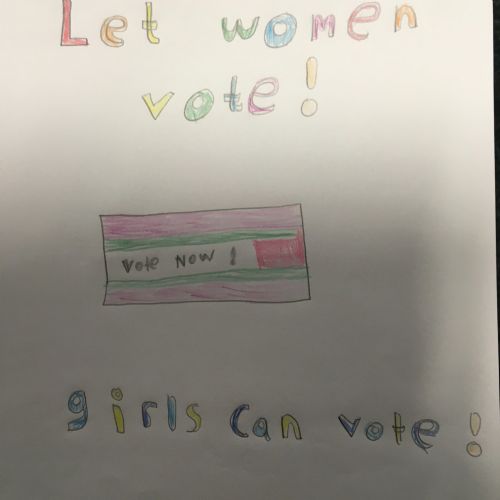 Let women
vote!
Vote Now!
girls can vote!